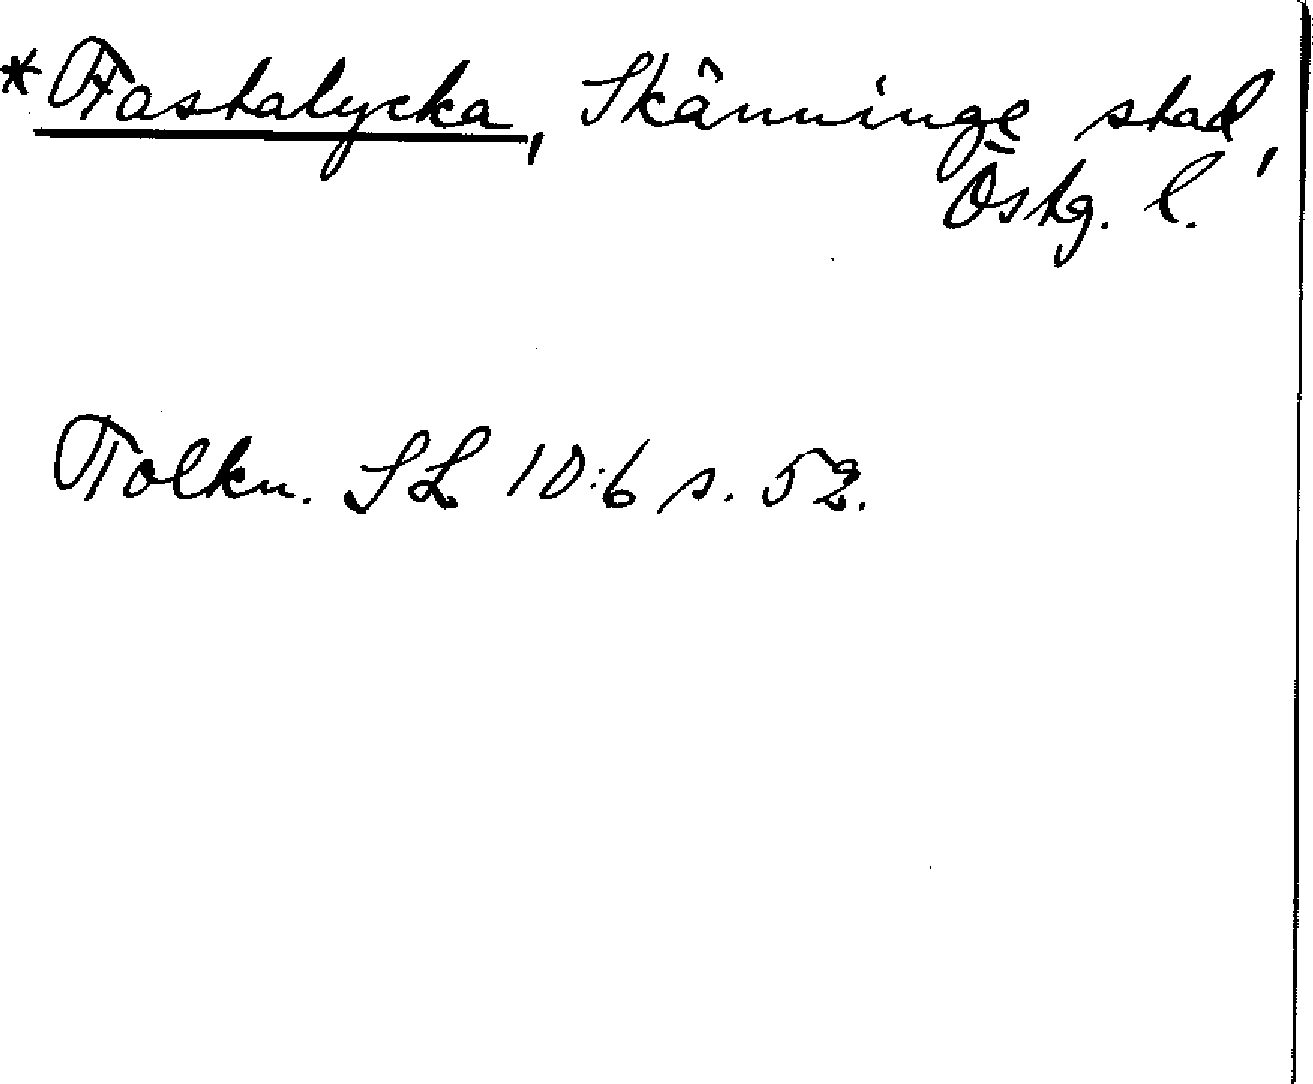 *Fastalycka, Skänninge stad,
Östg. l.
Tolkn. SL 10:6 s. 52.